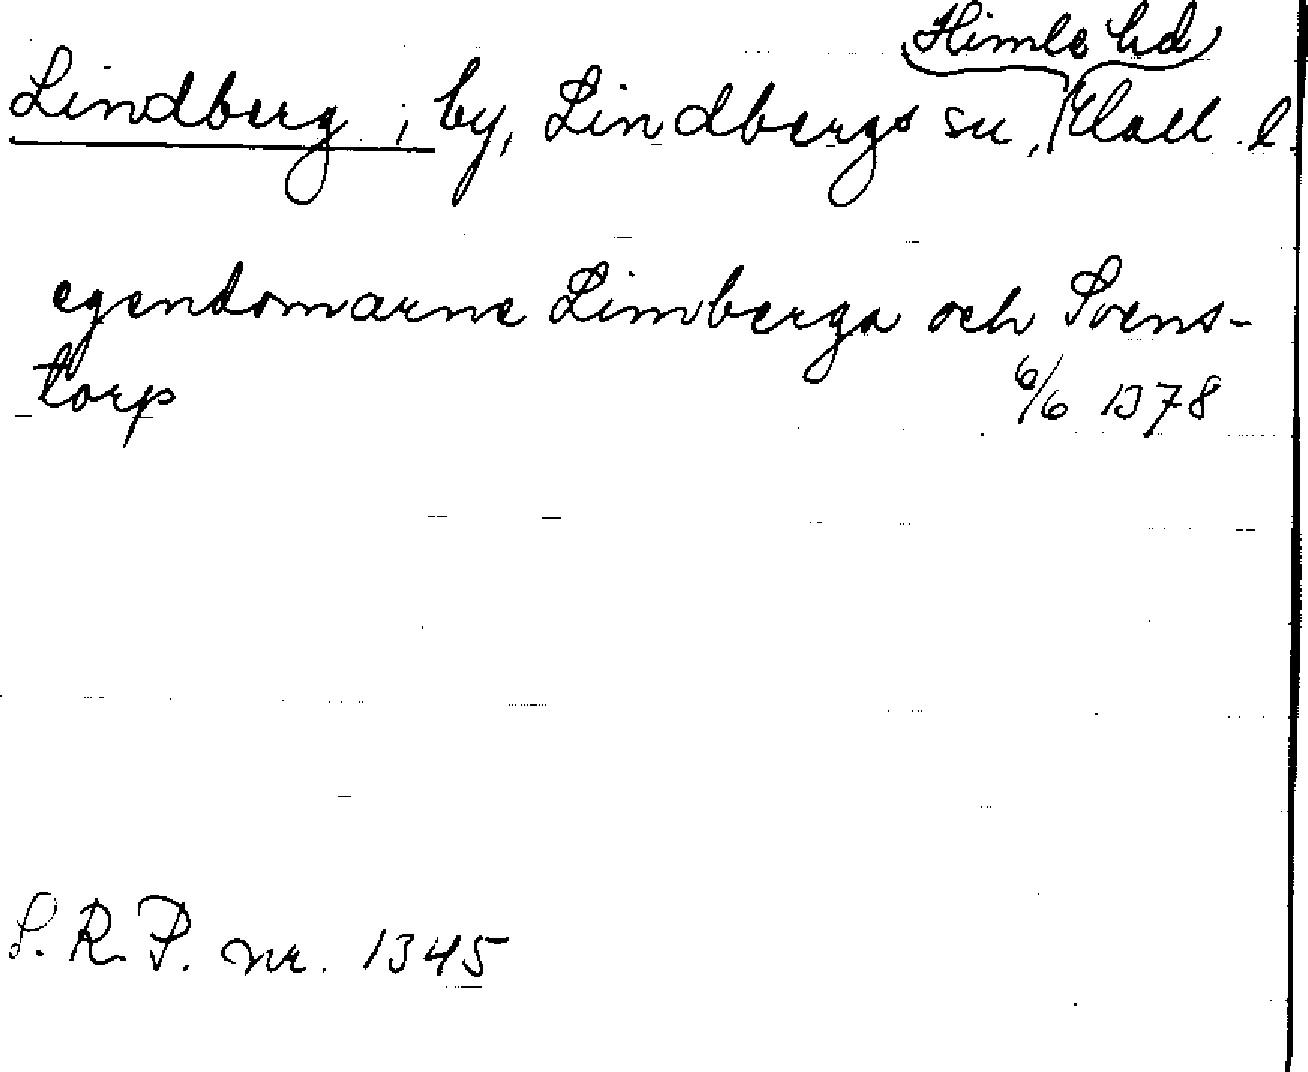 Himle hd
Lindberg, by, Lindbergs sn, Hall. l.
egendomarne Limberga och Svens-
torp
6/6 1378
S. R. P. nr. 1345